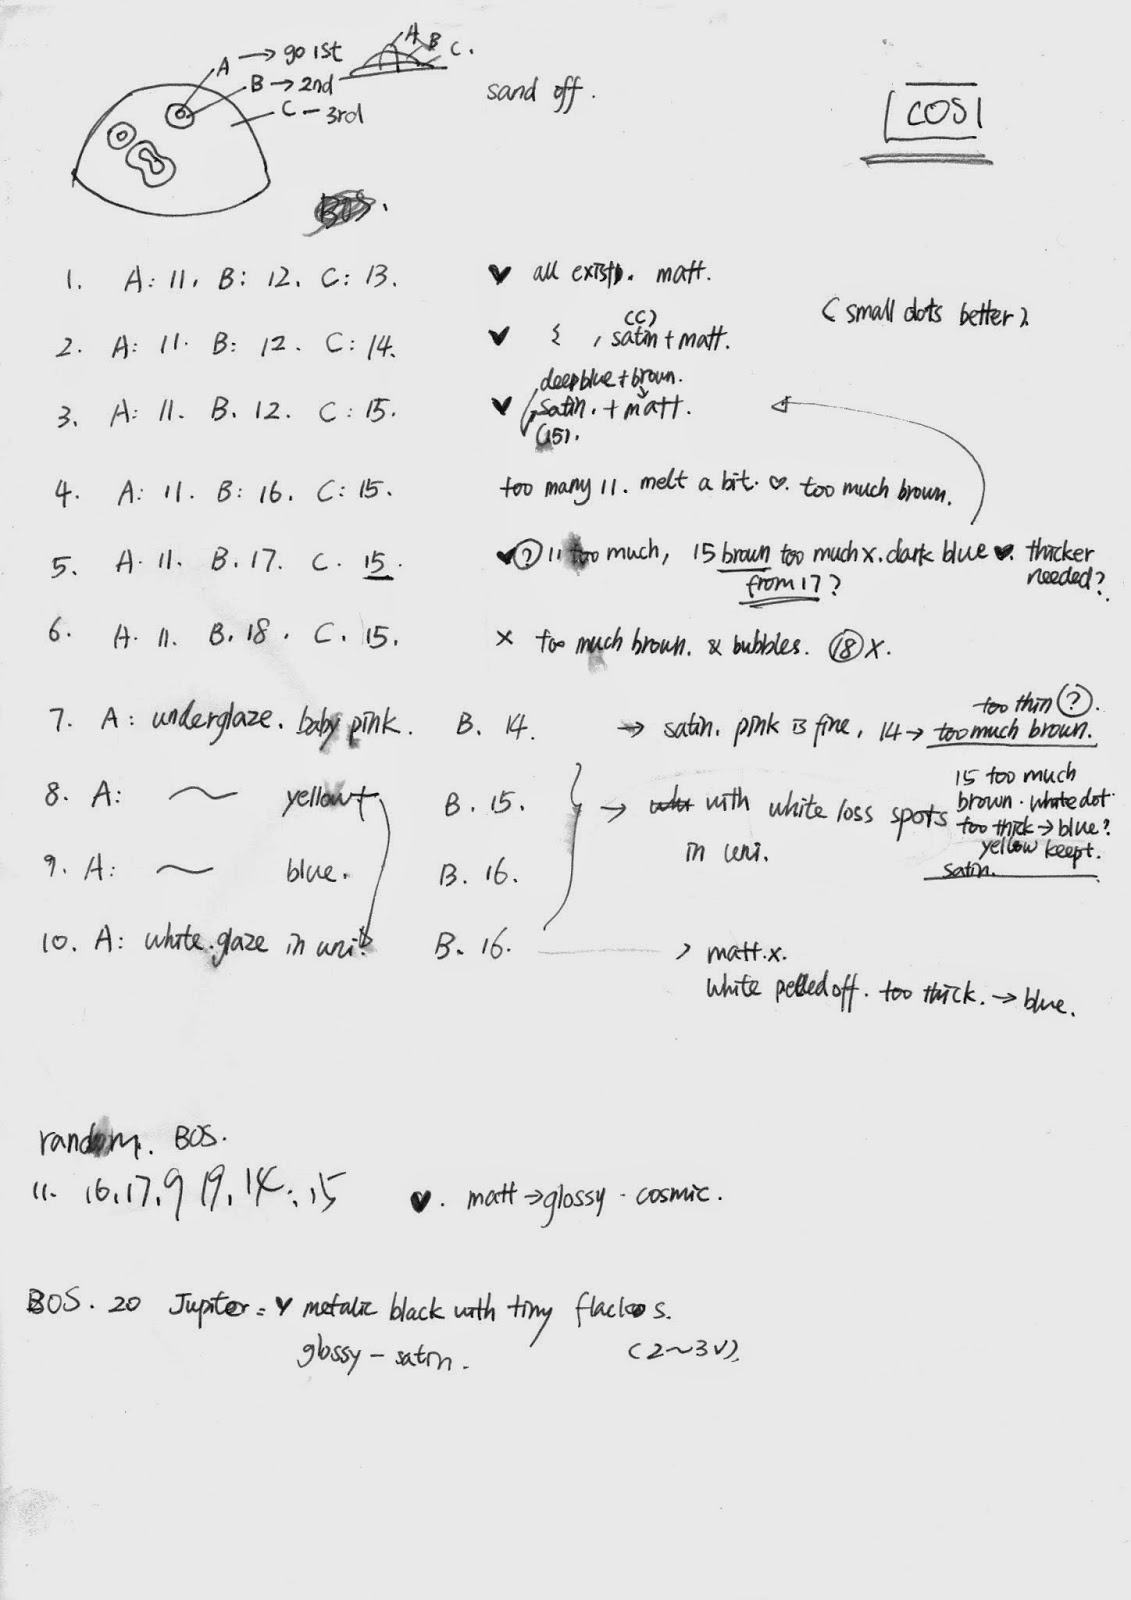 A → go 1st
B → 2nd
C – 3rd
A B C.
sand off.
COS1
BOS.
1. A: 11. B: 12. C: 13. ♥ all exist. matt.
(small dots better).
2. A: 11. B: 12. C: 14. ♥ , satin + matt.
(C)
deep blue + brown.
3. A: 11. B. 12. C: 15. ♥ satin. + matt.
(15).
4. A: 11. B: 16. C: 15. too many 11. melt a bit. ♡. too much brown.
5. A. 11. B. 17. C. 15. ♥? 11 too much, 15 brown too much x. dark blue ♥. thicker needed?
from 17?
6. A. 11. B. 18. C. 15. x too much brown. & bubbles. 18 x.
7. A: underglaze. baby pink. B. 14. → satin. pink is fine, 14 → too much brown.
too thin ?.
8. A: ~ yellow B. 15. → with white loss spots
in uni.
15 too much
brown. white dot.
too thick → blue?
yellow keept.
satin.
9. A: ~ blue. B. 16.
10. A: white. glaze in uni. B. 16. → matt. x.
white pelled off. too thick. → blue.
random. BOS.
11. 16, 17, 9 19, 14, 15 ♥. matt → glossy. cosmic.
BOS. 20 Jupiter = ♥ metalic black with tiny
glossy – satin. (2~3